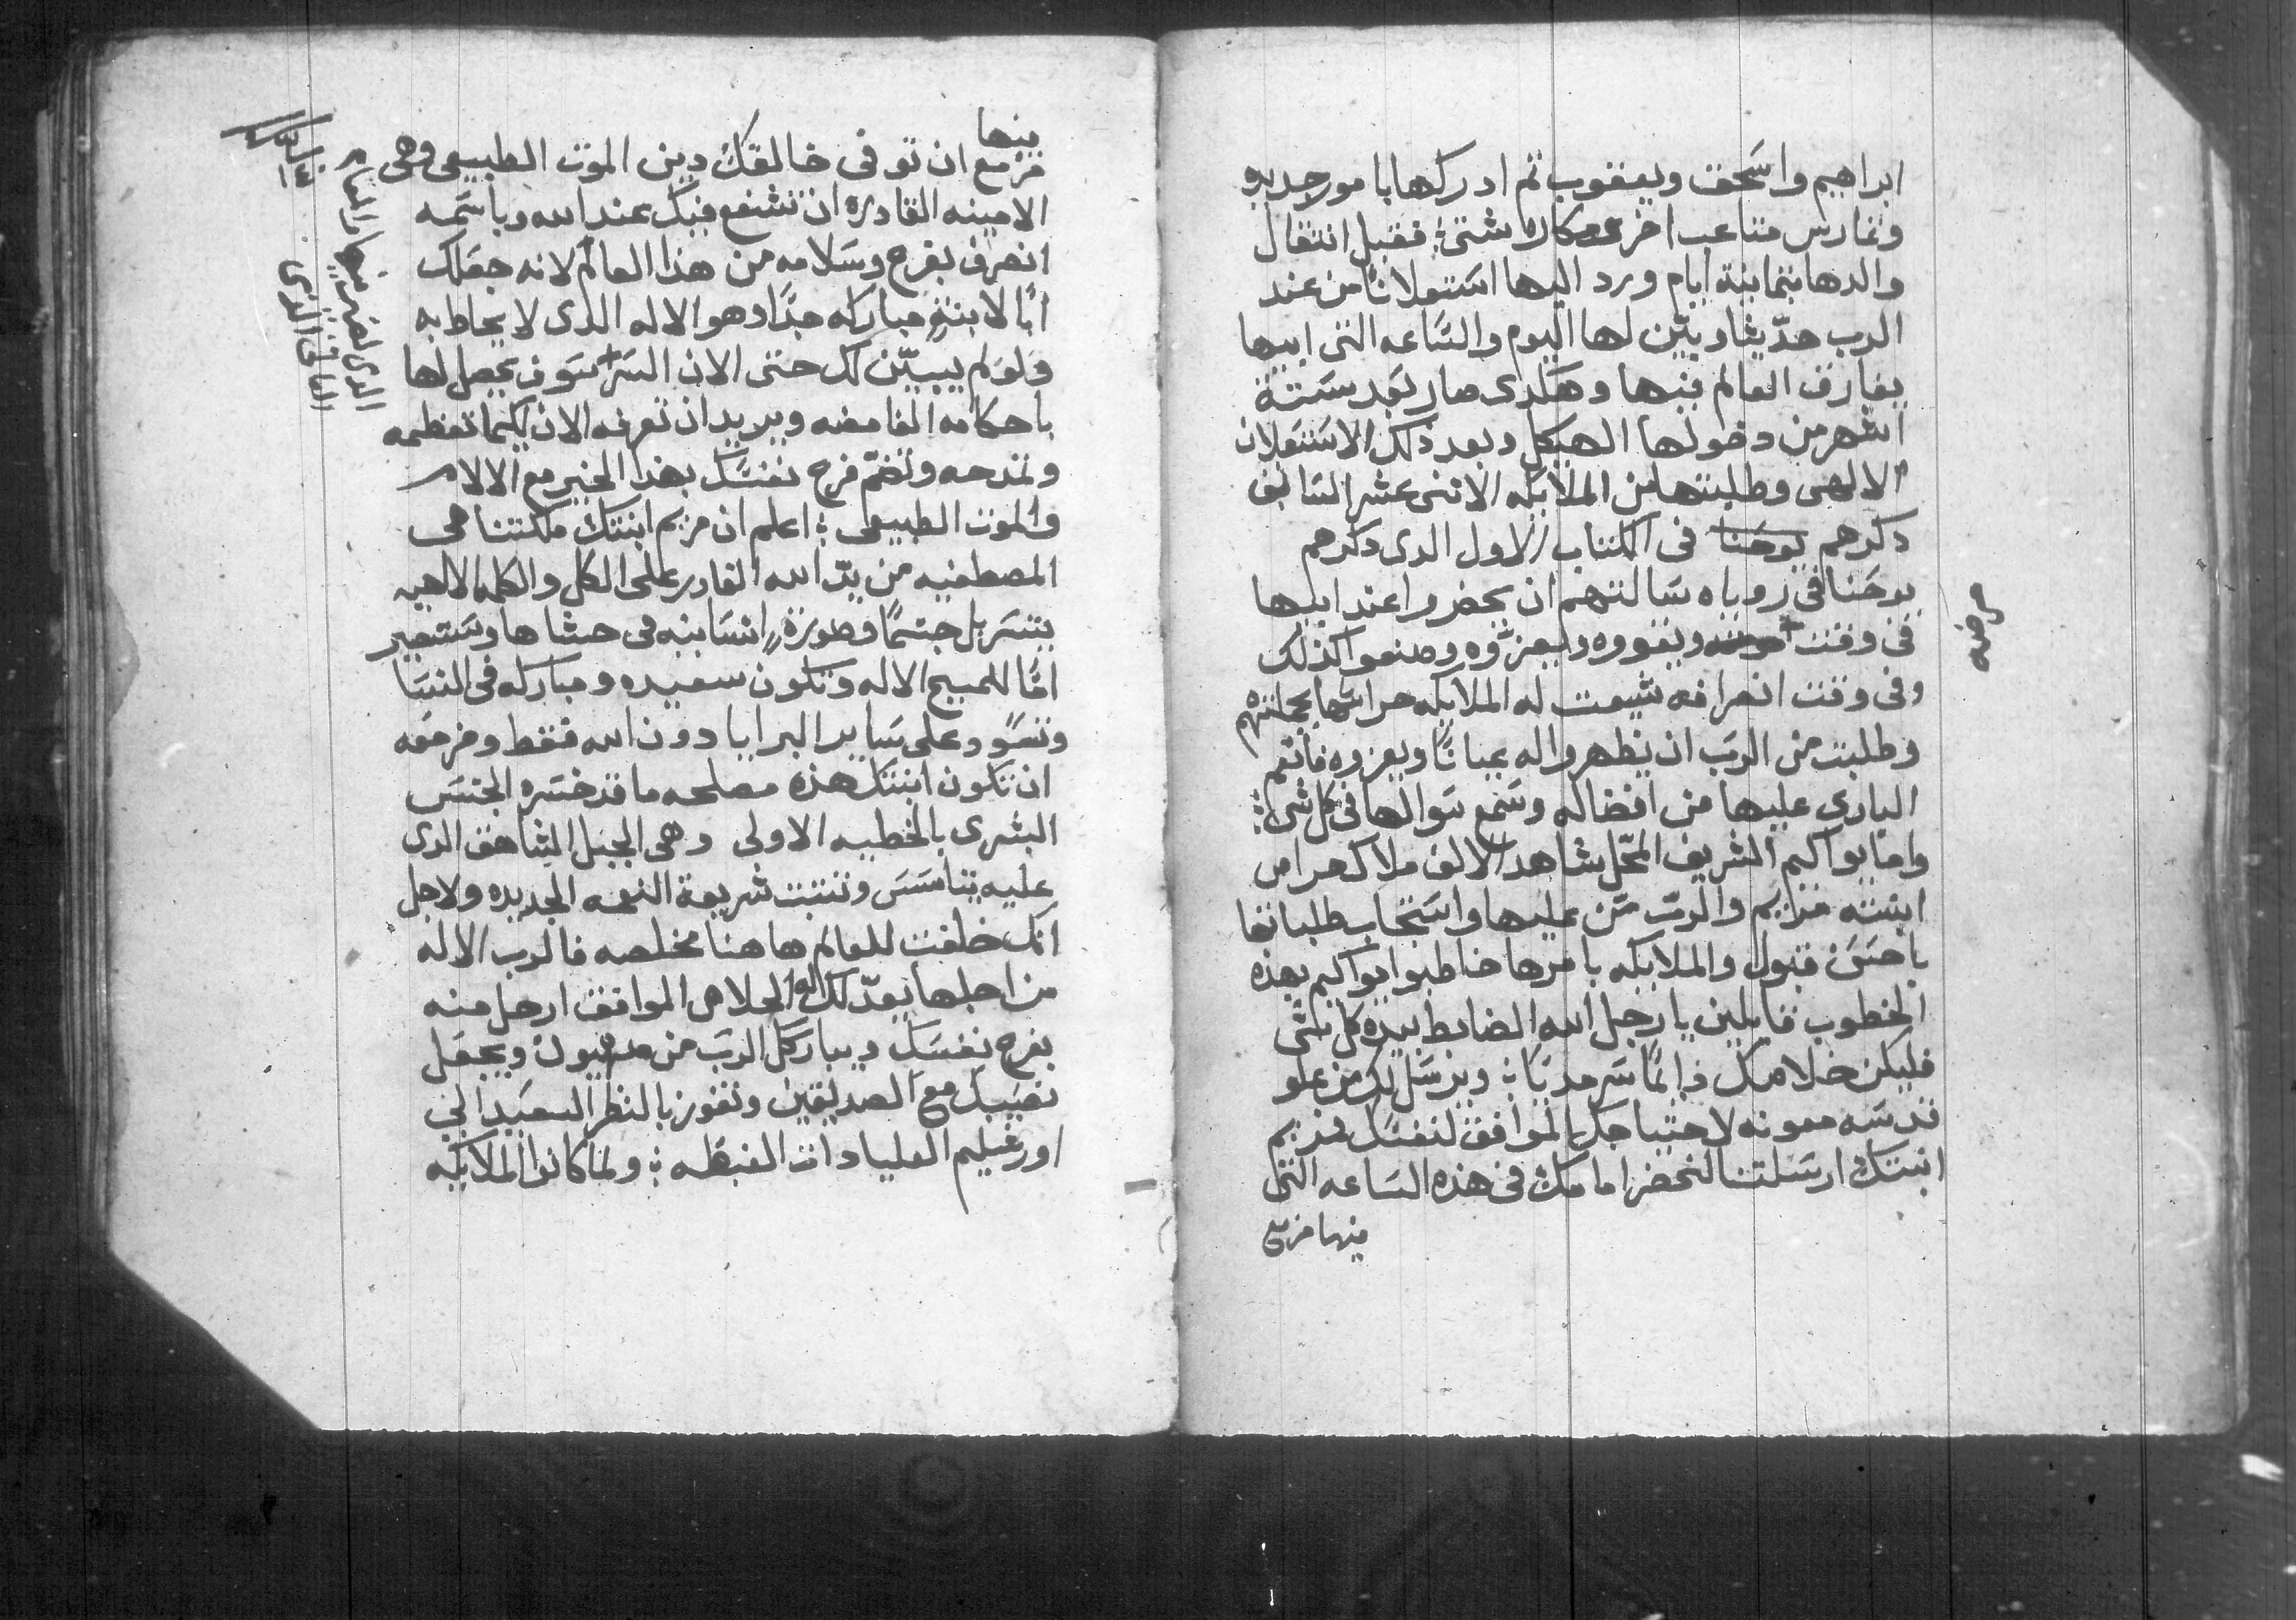 ابراهيم واسحق ويعقوب ثم ادركها بامور جديده
وتمارس متاعب اخر ومكاره شتى؛ فقبل انتقال
والدها بثمانية ايام ورد اليها استعلانًا من عند
الرب حدّيثا وبيّن لها اليوم والساعه التى ابيها
يفارق العالم فيها وهكدى صار بعد ستة
اشهر من دخولها الهيكل وبعد ذلك الاستعلان
الالهى وطلبتها من الملايكه الاثنى عشر السالف
دكرهم يوحنا فى الكتاب الاول الدى دكرهم
يوحنا فى روياه سالتهم ان يحضروا عند ابيها
فى وقت ويقووه ويعزّوه وصنعوا كذلك
وفى وقت انصرافه شيعت له الملايكه حراسها بجملتهم
وطلبت من الرب ان يظهروا له عيانًا ويعزوه فانعم
البارى عليها من افضاله وسمع سوالها فى كل شى؛
واما يواكيم الشريف المحّل شاهد الالف ملاك حراس
ابنته مريم والربّ منّ عليها واستجاب طلباتها
باحسن قبول والملايكه بامرها خاطبوا يواكيم بهذه
الخطوب قايلين يا رجل الله الضابط بيده كل شى
فليكن خلاصك دايمًا سرمديًا؛ ويرسل لك من علو
قدسه معونه لاحتياجك الموافق لنفسك مريم
ابنتك ارسلتنا لنحضر امامك فى هذه الساعه التى
فيها مزمع
مرضه
فيها
مزمع ان توفى خالقك دين الموت الطبيعى وهى
الامينه القادره ان تشفع فيك عند الله وباسمه
انصرف بفرح وسلامه من هذا العالم لانه جعلك
ابًا لابنةٍ مباركه جدًا وهو الاله الذى لا يحاط به
ولو لم يبيّن لك حتى الان السرّ سوف يحصل لها
باحكامه الغامضه ويريد ان تعرفه الان لكيما تعظمه
وتمدحه وتضمّ فرح نفسك بهذا الخبر مع الالام
والموت الطبيعى؛ اعلم ان مريم ابنتك ملكتنا هى
المصطفيه من يدّ الله القادر على الكل والكلمه الالاهيه
يتسربل جسمًا وصورةً انسانيه فى حشاها وستصير
امًّا للمسيح الاله وتكون سعيده ومباركه فى النسا
وتسود على ساير البرايا دون الله فقط ومزمعه
ان تكون ابنتك هذه مصلحه ما قد خسره الجنس
البشرى بالخطيه الاولى وهى الجبل الشاهق الدى
عليه يتاسس وتثبت شريعة النعمه الجديده ولاجل
انك خلفت للعالم هاهنا مخلصه فالرب الاله
من اجلها يعدّ لك الخلاص الموافق ارحل منه
بفرح نفسك ويباركك الرب من صهيون ويجعل
نصيبك مع الصديقين وتفوز بالنظر السعيد الى
اورشليم العليا دات الغبطه؛ ولما كانوا الملايكه